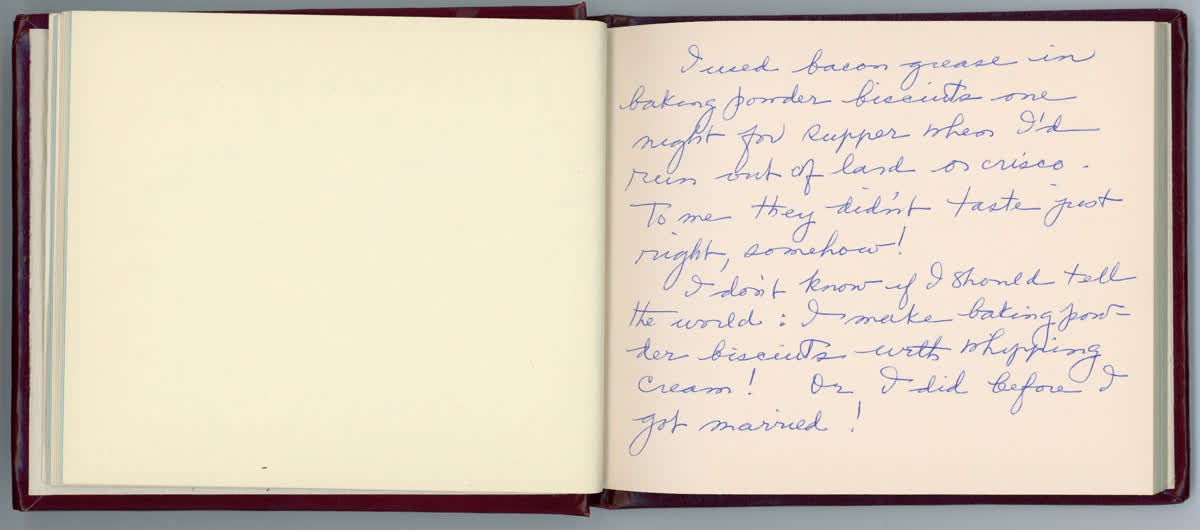 I used bacon grease in
baking powder biscuits one
night for supper when I'd
run out of lard or crisco.
To me they didn't taste just
right, somehow!
I don't know if I should tell
the world: I make baking pow-
der biscuits with whipping
cream! Or, I did before I
got married!